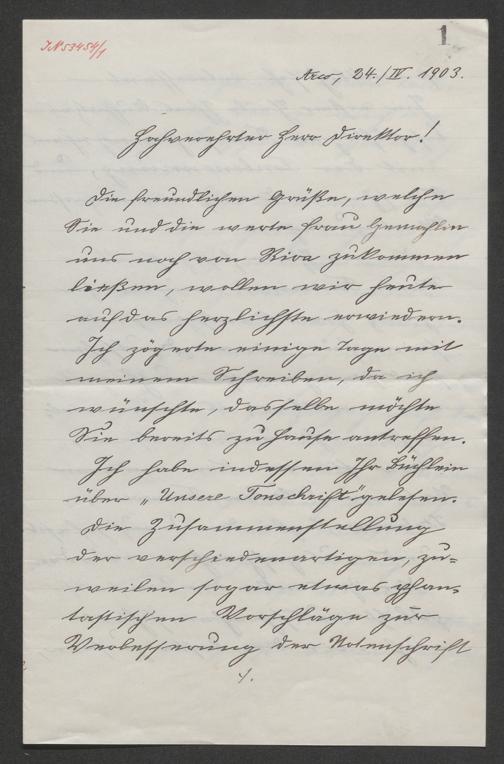 INo 53454/1
1
Arco, 24./IV. 1903.
Hochverehrter Herr Direktor!
Die freundlichen Grüße, welche
Sie und die werte Frau Gemahlin
uns noch von Riva zukommen
ließen, wollen wir heute
auf das herzlichste erwiedern.
Ich zögerte einige Tage mit
meinem Schreiben, da ich
wünschte, dasselbe möchte
Sie bereits zu Hause antreffen.
Ich habe indessen Ihr Büchlein
über „Unsere Tonschrift" gelesen.
Die Zusammenstellung
der verschiedenartigen, zu=
weilen sogar etwas phan=
tastischen Vorschläge zur
Verbesserung der Notenschrift
./.